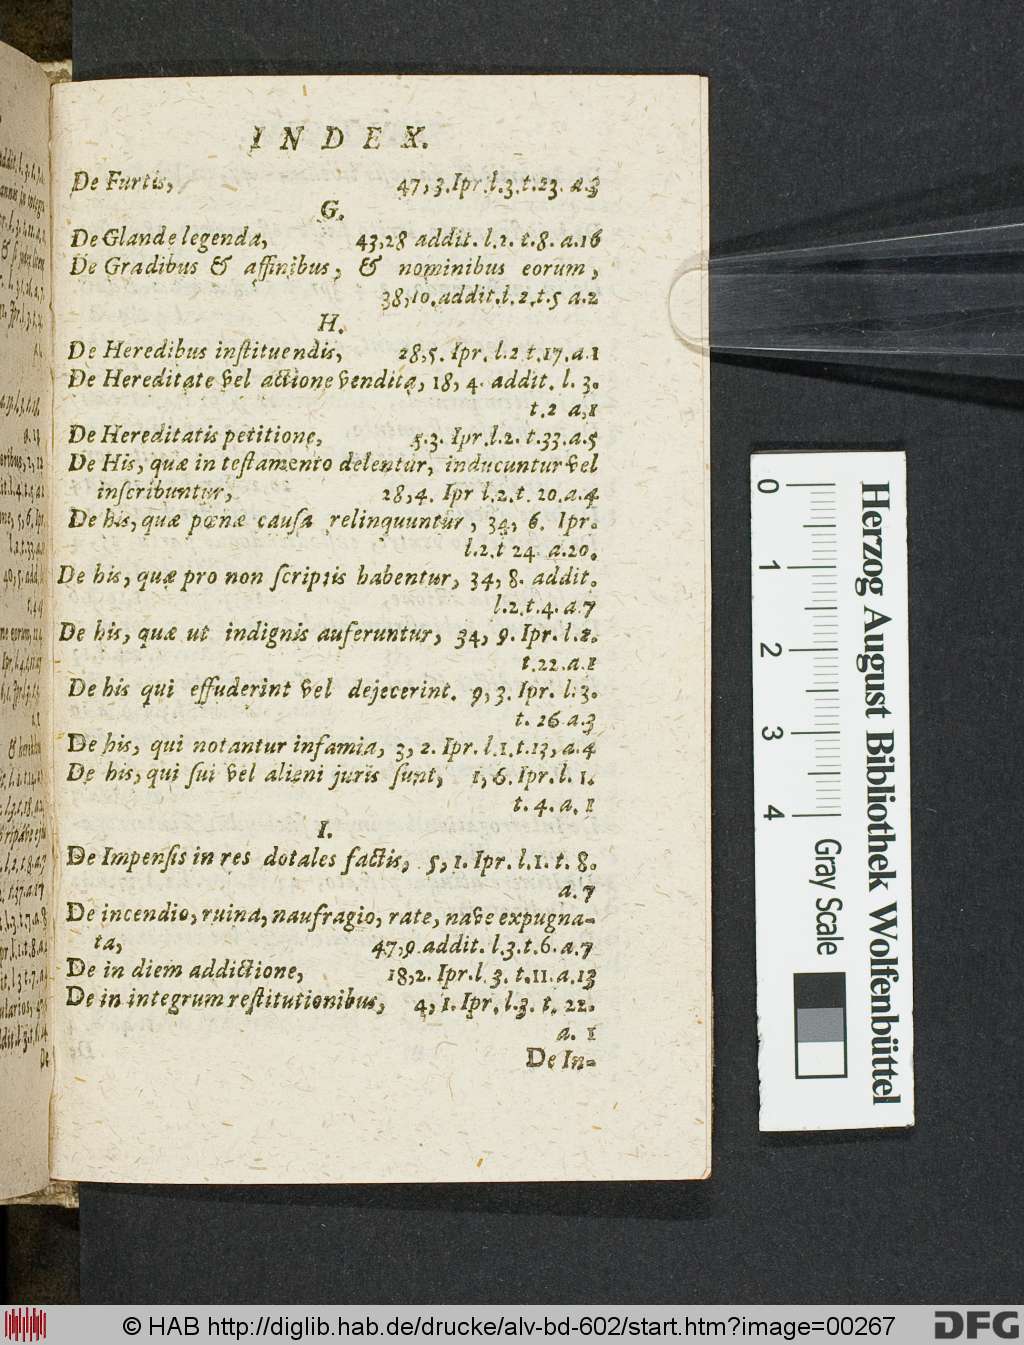 INDEX.
De Furtis, 47,3.Ipr.l.3.t.23. a.3
G.
De Glande legenda, 43,28 addit. l.2. t.8. a.16
De Gradibus & affinibus, & nominibus eorum,
38,10.addit.l.2.t.5 a.2
H.
De Heredibus inſtituendis, 28,5. Ipr. l.2 t.17.a.1
De Hereditate vel actione vendita, 18, 4. addit. l. 3.
t.2 a,1
De Hereditatis petitione, 5.3. Ipr.l.2. t.33.a.5
De His, quæ in teſtamento delentur, inducuntur vel
inſcribuntur, 28,4. Ipr l.2.t. 20.a.4
De his, quæ pœnæ cauſa relinquuntur, 34, 6. Ipr.
l.2.t 24 a.20.
De his, quæ pro non ſcriptis habentur, 34, 8. addit.
l.2.t.4. a.7
De his, quæ ut indignis auferuntur, 34, 9. Ipr. l.2.
t.22.a.1
De his qui effuderint vel dejecerint. 9, 3. Ipr. l.3.
t. 26 a.3
De his, qui notantur infamia, 3, 2. Ipr. l.1.t.13, a.4
De his, qui ſui vel alieni juris ſunt, 1, 6. Ipr. l. 1.
t. 4. a. 1
I.
De Impenſis in res dotales factis, 5, 1. Ipr. l.1. t. 8.
a. 7
De incendio, ruina, naufragio, rate, nave expugna-
ta, 47,9 addit. l.3.t.6. a.7
De in diem addictione, 18,2. Ipr.l 3. t.11.a.13
De in integrum reſtitutionibus, 4, 1. Ipr. l.3. t. 22.
a. 1
De In-
0 1 2 3 4
Gray Scale
Herzog August Bibliothek Wolfenbüttel
© HAB http://diglib.hab.de/drucke/alv-bd-602/start.htm?image=00267
DFG